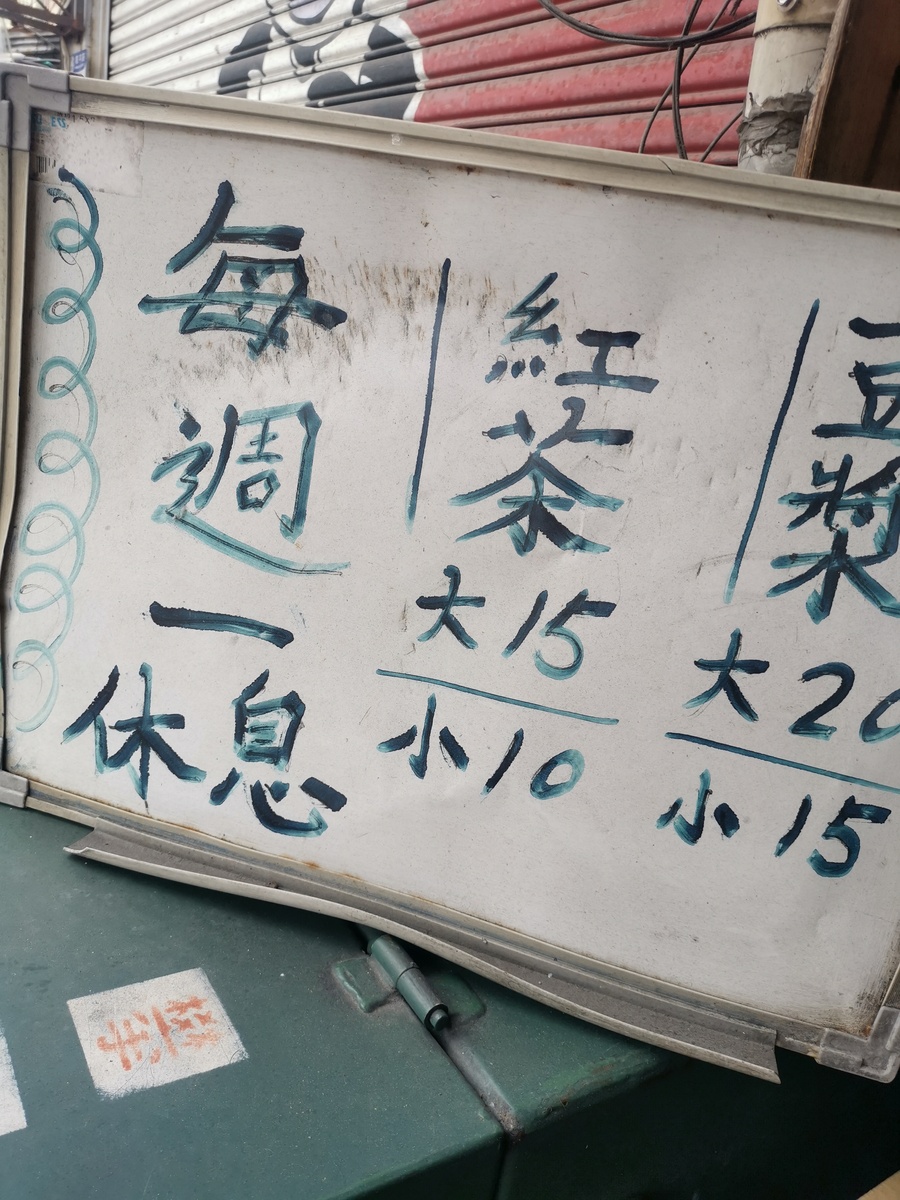 每週一
休息
紅茶
大15
小10
豆漿
大20
小15